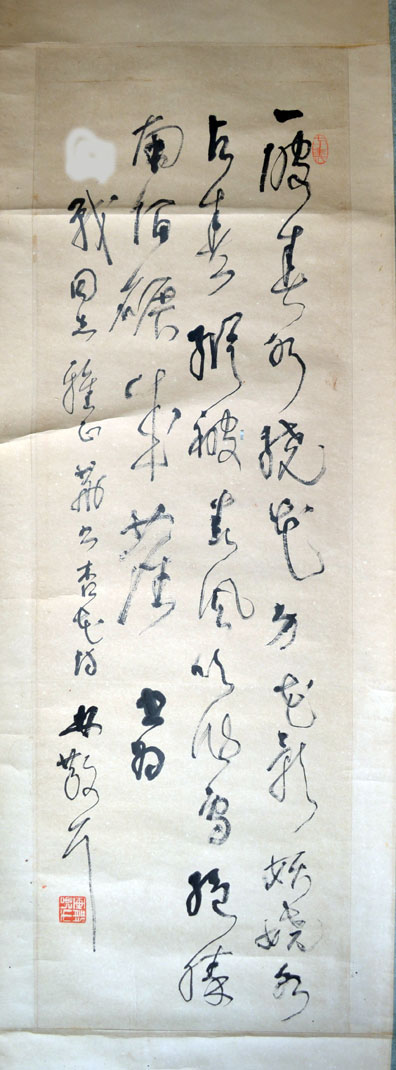 一陂春水繞花身花影妖嬈各
占春縱被春風吹作雪絕勝
南陌碾成塵 書為
戰同志雅正 荊公杏花詩 林散耳